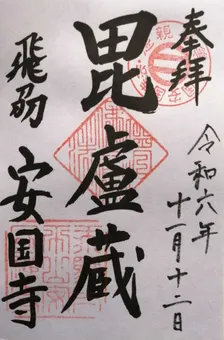 奉拝
令和六年
十一月十二日
毘盧蔵
飛州
安国寺